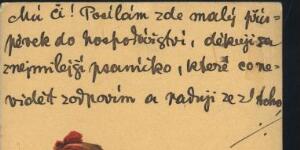 Má Či! Posílám zde malý přís-
pěvek do hospodářství, děkuji za
znejmilejší psaníčko, které co ne-
vidět zodpovím a raduji ze